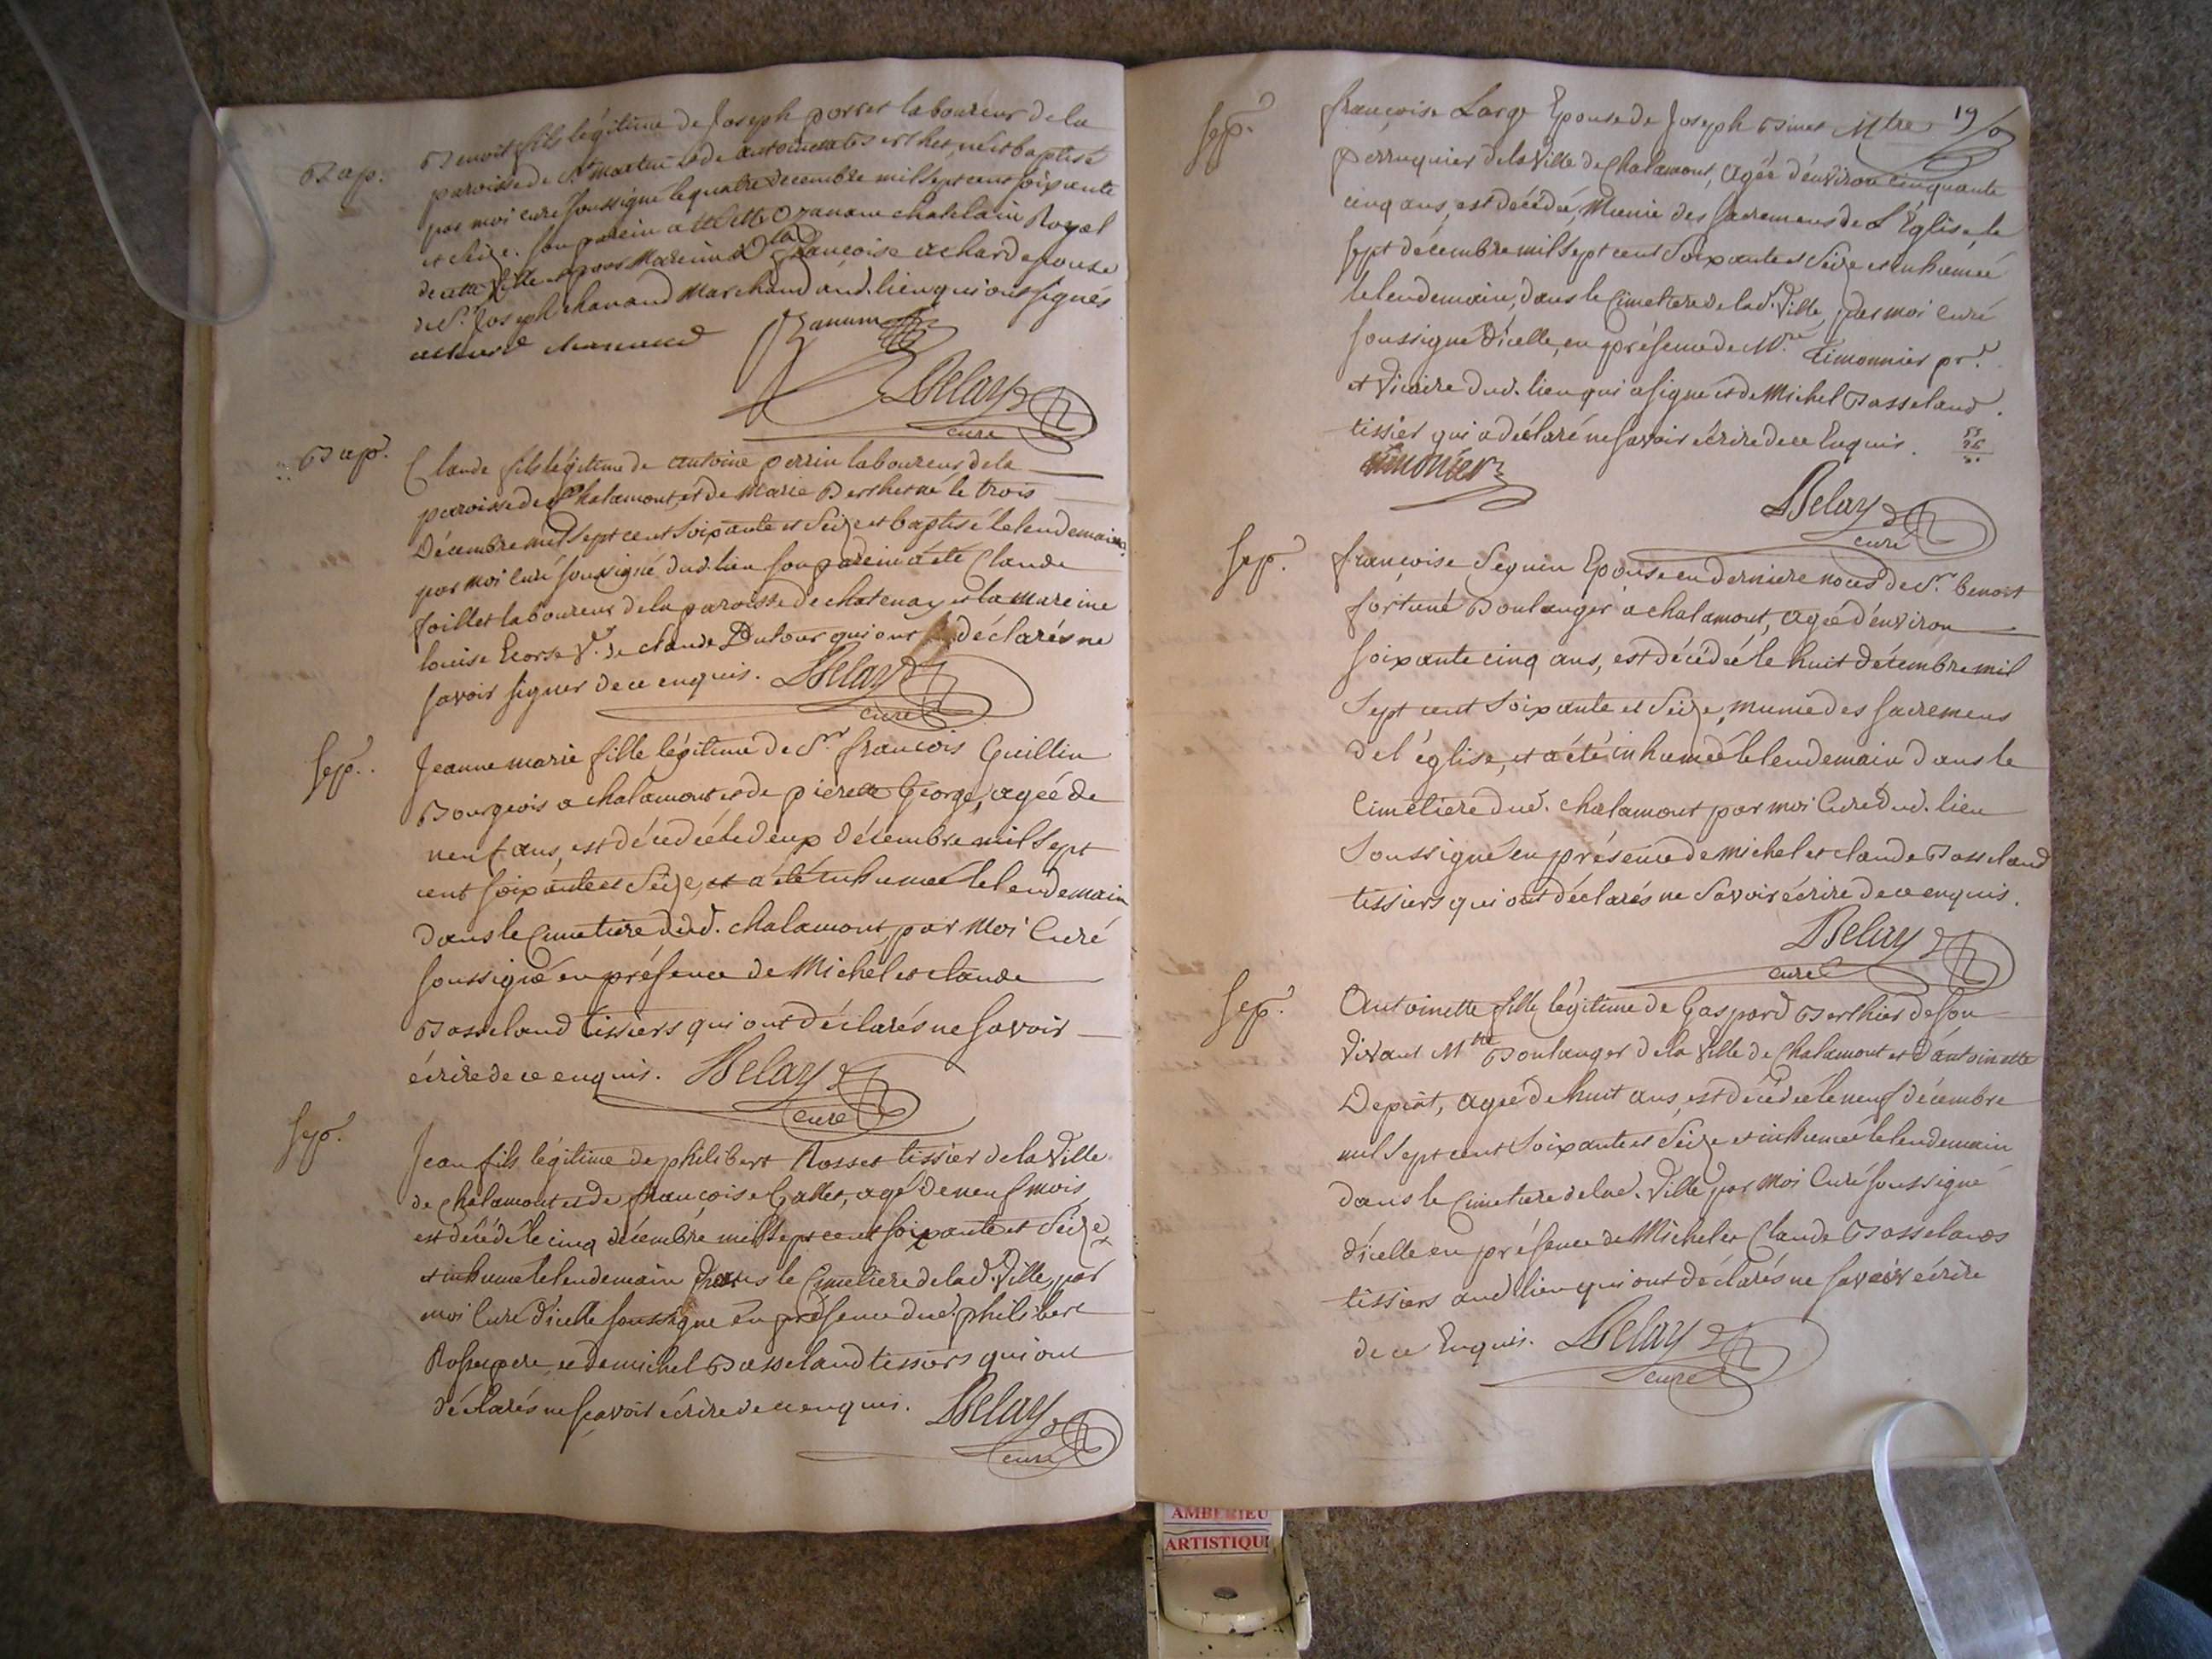 Bap.
Benoit fils légitime de Joseph porret laboureur de la
paroisse de St martin et de antoinette Berthet, né et baptisé
par moi curé soussigné le quatre decembre mil sept cent soixante
et seize. son parein a été Ozanam chatelain Royal
de cette Ville et pour Mareine dlle françoise achard epouse
de Sr. Joseph chanand Marchand aud. lieu qui ont signés
achard chanand Ozanam
Delay
curé
Bap.
Claude fils légitime de antoine perrin laboureur de la
paroisse de Chalamont, et de Marie Berthet né le trois
Décembre mil sept cent soixante et seize et baptisé le lendemain
par moi Curé soussigné dud. lieu son parein a été Claude
foillet laboureur de la paroisse de chatenay et la mareine
louise Ecorse Ve. de claude Dutour qui ont déclarés ne
savoir signer de ce enquis. Delay
curé
sep.
Jeanne marie fille légitime de Sr. francois Guillin
Bourgeois a chalamont et de pierette George, ageé de
neuf ans, est décedeé le deux décembre mil sept
cent soixante et seize, et a été inhumeé le lendemain
dans le Cimetiere dud. chalamont, par moi Curé
soussigné en présence de Michel et claude
Basseland tissiers qui ont déclarés ne savoir
écrire de ce enquis. Delay
curé
sep.
Jean fils légitime de philibert Rosset tissier de la Ville
de Chalamont et de françoise Gallet, agé de neuf mois
est décédé le cinq décembre mil sept cent soixante et seize
et inhumé le lendemain dans le Cimetiere de lad. Ville, par
moi Curé d'icelle soussigné en présence dud. philibert
Rosset pere, et de michel Basseland tissiers qui ont
déclarés ne sçavoir écrire de ce enquis. Delay
curé
19
sep.
françoise Large Epouse de Joseph Binet Mtre
perruquier de la Ville de Chalamont, ageé d'environ cinquante
cinq ans, est décédeé, Munie des sacremens de L'Église, le
sept décembre mil sept cent soixante et seize et inhumeé
le lendemain, dans le Cimetiere de lad. Ville, par moi Curé
soussigné d'icelle, en présence de Mre. timonnier pr.
et Vicaire dud. lieu qui a signé et de Michel Basseland
tissier qui a déclaré ne savoir écrire de ce Enquis.
timonier
Delay
curé
sep.
françoise Seguin Epouse en derniere noces de Sr. benoit
fortuné Boulanger a chalamont, ageé d'environ
soixante cinq ans, est décédeé le huit décembre mil
sept cent soixante et seize, munie des sacremens
de l'église, et a été inhumeé le lendemain dans le
Cimetiere dud. chalamont par moi Curé dud. lieu
soussigné en présence de michel et claude Basseland
tissiers qui ont déclarés ne savoir écrire de ce enquis.
Delay
curé
sep.
Antoinette fille légitime de Gaspard Berthier de son
Vivant Mtre Boulanger de la Ville de Chalamont et d'antoinette
, ageé de huit ans, est décédeé le neuf décembre
mil sept cent soixante et seize et inhumeé le lendemain
dans le Cimetiere de lad. Ville par moi Curé soussigné
d'icelle en présence de Michel et Claude Basselands
tissiers aud. lieu qui ont déclarés ne savoir écrire
de ce Enquis. Delay
curé
AMBERIEU
ARTISTIQU